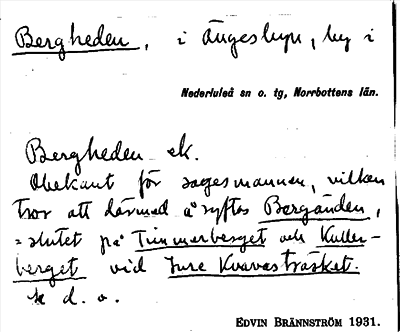 Bergheden, i Ängesbyn, by i
Nederluleå sn o. tg, Norrbottens län.
Bergheden ek.
Obekant för sagesmannen, vilken
tror att därmed åsyftes Bergänden,
= slutet på Timmerberget och Kuller-
berget vid Inre Kvarnträsket.
d. o.
EDVIN BRÄNNSTRÖM 1931.